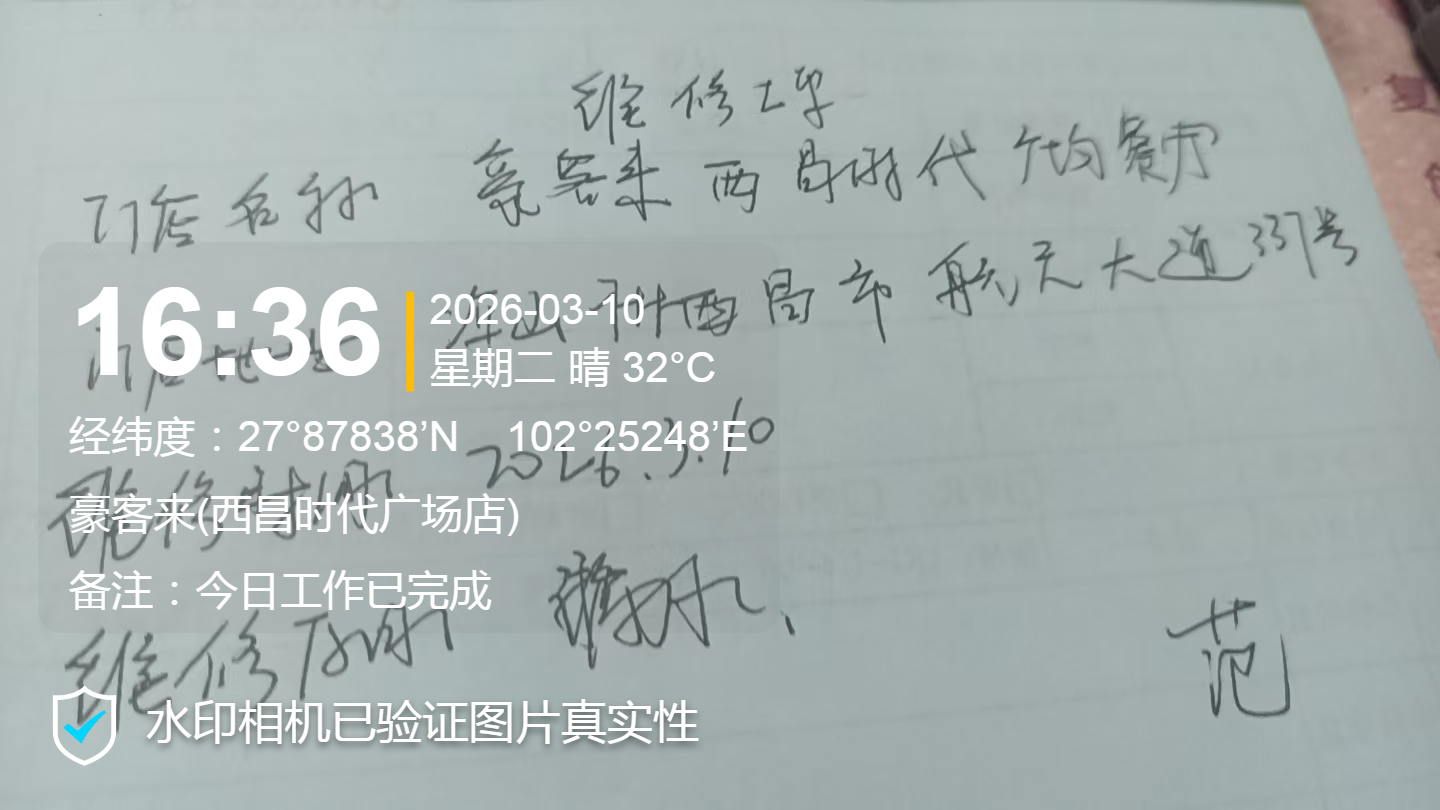 维修工单
门店名称 豪客来西昌时代广场餐厅
门店地址 凉山州西昌市航天大道337号
16:36
2026-03-10
星期二 晴 32°C
经纬度：27°87838’N 102°25248’E
2026.3.10
豪客来(西昌时代广场店)
维修时间
备注：今日工作已完成
维修原因
范
水印相机已验证图片真实性